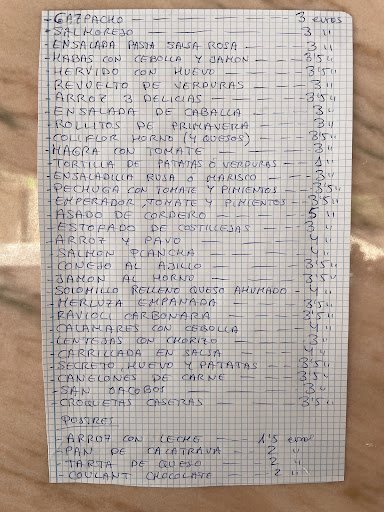 - GAZPACHO - 3 euros
- SALMOREJO - 3 "
- ENSALADA PASTA SALSA ROSA - 3 "
- HABAS CON CEBOLLA Y JAMON - 3'5 "
- HERVIDO CON HUEVO - 3'5 "
- REVUELTO DE VERDURAS - 3 "
- ARROZ 3 DELICIAS - 3'5 "
- ENSALADA DE CABALLA - 3 "
- ROLLITOS DE PRIMAVERA - 3 "
- COLIFLOR HORNO (4 QUESOS) - 3'5 "
- MAGRA CON TOMATE - 3 "
- TORTILLA DE PATATAS O VERDURAS - 1 "
- ENSALADILLA RUSA O MARISCO - 3 "
- PECHUGA CON TOMATE Y PIMIENTOS - 3'5 "
- EMPERADOR, TOMATE Y PIMIENTOS - 3'5 "
- ASADO DE CORDERO - 5 "
- ESTOFADO DE COSTILLEJAS - 3 "
- ARROZ Y PAVO - 4 "
- SALMON PLANCHA - 4 "
- CONEJO AL AJILLO - 3'5 "
- JAMON AL HORNO - 3'5 "
- SOLOMILLO RELLENO QUESO AHUMADO - 4 "
- MERLUZA EMPANADA - 3'5 "
- RAVIOLI CARBONARA - 3'5 "
- CALAMARES CON CEBOLLA - 4 "
- LENTEJAS CON CHORIZO - 3 "
- CARRILLADA EN SALSA - 4 "
- SECRETO, HUEVO Y PATATAS - 3'5 "
- CANELONES DE CARNE - 3'5 "
- SAN JACOBOS - 3 "
- CROQUETAS CASERAS - 3'5 "
POSTRES
- ARROZ CON LECHE - 1'5 euros
- PAN DE CALATRAVA - 2 "
- TARTA DE QUESO - 2 "
- COULANT CHOCOLATE - 2 "